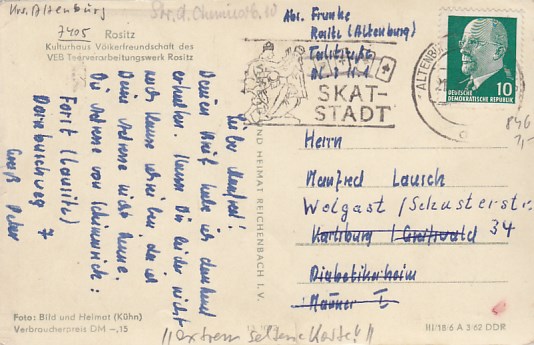 Krs. Altenburg
7405 Rositz
Kulturhaus Völkerfreundschaft des
VEB Teerverarbeitungswerk Rositz
Str. d. Chemiearb. 10
Abs. Franke
Rositz (Altenburg)
SKAT-
STADT
ALTENBURG
DEUTSCHE
DEMOKRATISCHE REPUBLIK
10
846
7,-
Lieber Manfred!
Deinen Brief habe ich dankend
erhalten. Kann Dir leider nicht
Deine Adresse nicht kenne.
Die Adresse von Schimmrick:
Forst (Lausitz)
Dornbuschweg 7
Gruß Peter
UND HEIMAT REICHENBACH I. V.
Herrn
Manfred Lausch
Wolgast / Schusterstr.
34
Karlsburg (Greifswald
Diabetikerheim
Männer I
Foto: Bild und Heimat (Kühn)
Verbraucherpreis DM -,15
"extrem seltene Karte!"
III/18/6 A 3/62 DDR